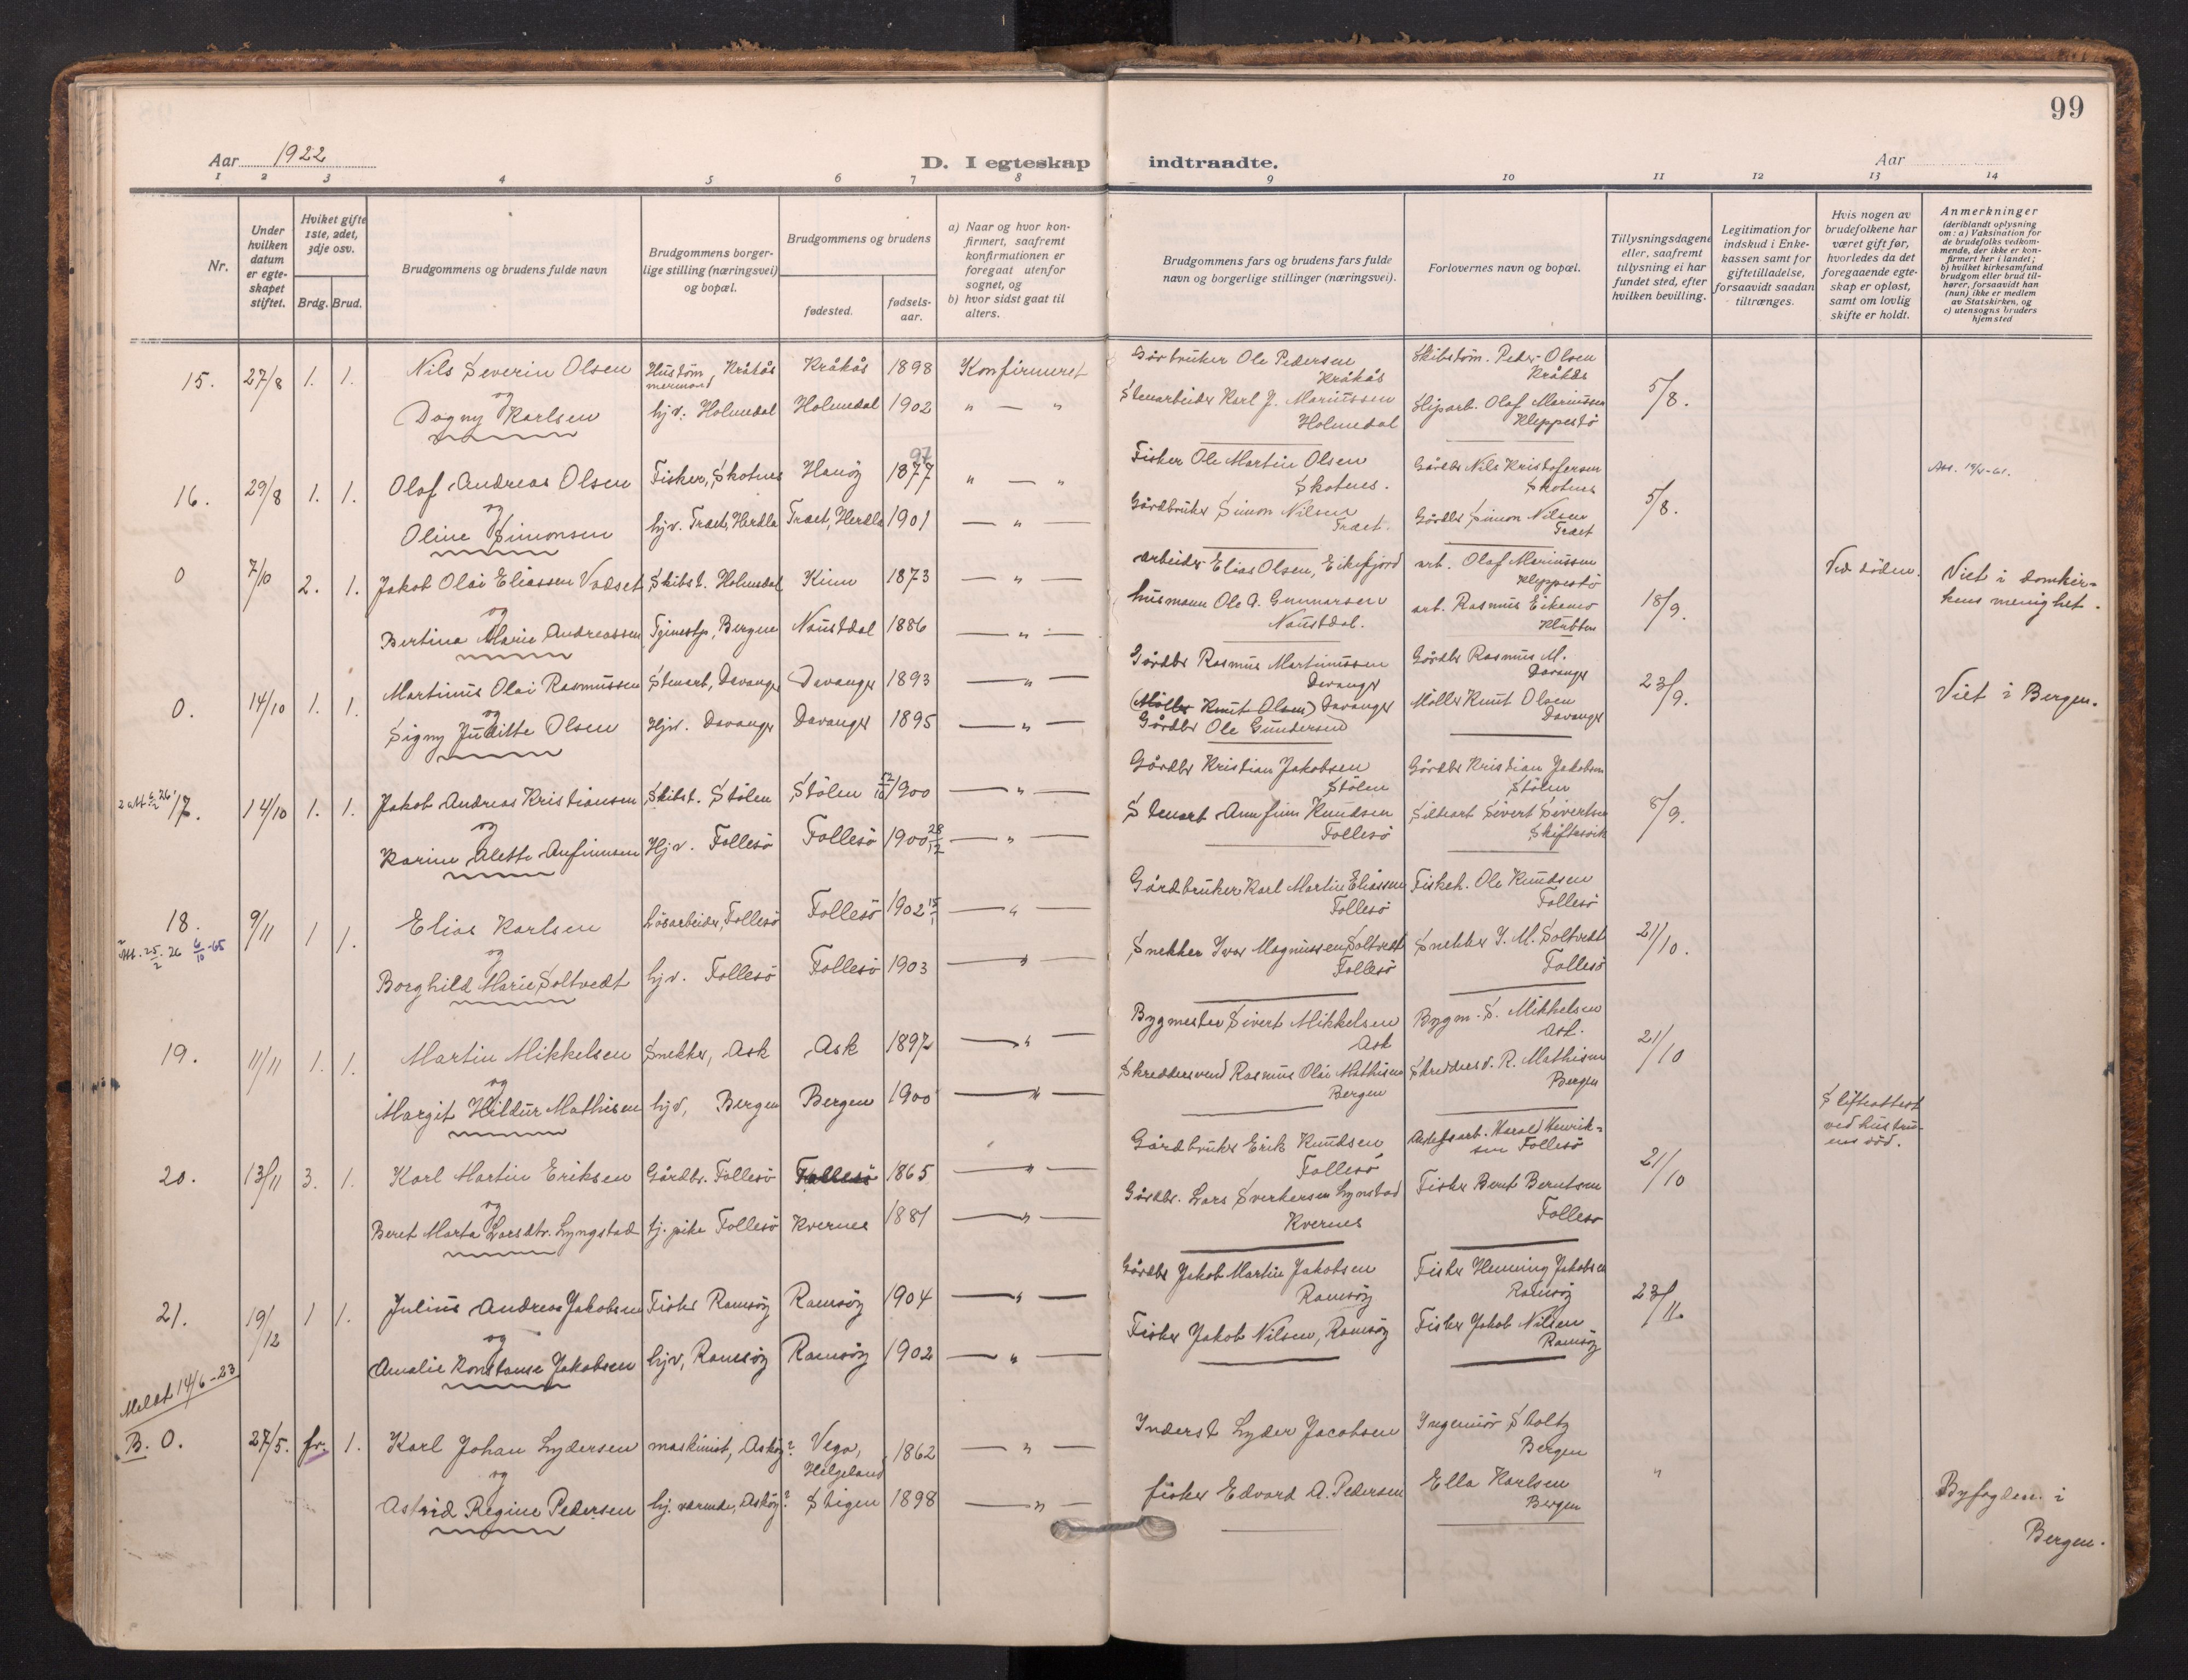 99
Aar 1922
D. I egteskap indtraadte.
Aar
1 2 3 4 5 6 7 8 9 10 11 12 13 14
Nr.
Under
hvilken
datum
er egte-
skapet
stiftet.
Hviket gifte
1ste, 2det,
3dje osv.
Brdg. Brud.
Brudgommens og brudens fulde navn
Brudgommens borger-
lige stilling (næringsvei)
og bopæl.
Brudgommens og brudens
fødested.
fødsels-
aar.
a) Naar og hvor kon-
firmert, saafremt
konfirmationen er
foregaat utenfor
sognet, og
b) hvor sidst gaat til
alters.
Brudgommens fars og brudens fars fulde
navn og borgerlige stillinger (næringsvei).
Forlovernes navn og bopæl.
Tillysningsdagene
eller, saafremt
tillysning ei har
fundet sted, efter
hvilken bevilling.
Legitimation for
indskud i Enke-
kassen samt for
giftetilladelse,
forsaavidt saadan
tiltrænges.
Hvis nogen av
brudefolkene har
været gift før,
hvorledes da det
foregaaende egte-
skap er opløst,
samt om lovlig
skifte er holdt.
Anmerkninger
(deriblandt oplysning
om: a) Vaksination for
de brudefolks vedkom-
mende, der ikke er kon-
firmert her i landet;
b) hvilket kirkesamfund
brudgom eller brud til-
hører, forsaavidt han
(hun) ikke er medlem
av Statskirken, og
c) utensogns bruders
hjemsted
15. 27/8 1. 1. Nils Severin Olsen Hustøm, Kråkås Kråkås 1898 Konfirmeret
mermand
og
Dagny Karlsen hj.v. Holmedal Holmedal 1902 " — "
Går bruker Ole Pedersen
Kråkås
Stenarbeider Karl J. Mariussen
Holmedal
Skibstøm. Peder Olsen
Kråkås
Sliparb. Olaf Mariussen
Kleppestö
5/8.
16. 29/8 1. 1. Olaf Andreas Olsen Fisker, Skotnes Hanöy 1877 97 " — "
og
Oline Simonsen hjv. Træt, Herdla Træt, Herdla 1901 — " —
Fisker Ole Martin Olsen
Skotnes.
Gårdbruker Simon Nilsen
Træt.
Gårdbr Nils Kristofersen
Skotnes
Gårdbr Simon Nilsen
Træt
5/8.
0 7/10 2. 1. Jakob Olai Eliassen Vadset Skibst. Holmedal Kinn 1873 — " —
og
Bertina Marie Andreassen Tjenestp, Bergen Naustdal 1886 — " —
arbeider Elias Olsen, Eikefjord
husmann Ole A. Gunnarsen
Naustdal.
arb. Olaf Mariussen
Kleppestö
arb. Rasmus Eikemo
Klubben
18/9.
Ved döden.
Viet i domkir-
kens menighet.
0. 14/10 1. 1. Martinus Olai Rasmussen Stenarb, Davanger Davanger 1893 — " —
og
Signy Juditte Olsen Hjv. Davanger Davanger 1895 — " —
Gårdbr Rasmus Martinussen
Davanger
(Möller Knut Olsen) Davanger
Gårdbr Ole Gundersen
Gårdbr Rasmus M.
Davanger
Möller Knut Olsen
Davanger
23/9.
Viet i Bergen.
17. 14/10 1. 1. Jakob Andreas Kristiansen Skibst. Stölen Stölen 1900 — " —
og
Karine Alette Anfinnsen Hj.v. Follesö Follesö 1900 28/12 — " —
Gårdbr Kristian Jakobsen
Stölen
Stenarb Annfinn Knudsen
Follesö
Gårdbr Kristian Jakobsen
Stölen
Sivert Sivertsen
Skiftesvik
8/9.
18. 9/11 1 1. Elias Karlsen Løsarbeider, Follesö Follesö 1902 15/1 — " —
Att. 25/2. 26 6/10-65
og
Borghild Marie Soltvedt hj.v. Follesö Follesö 1903 — " —
Gårdbruker Karl Martin Eliassen
Follesö
Snekker Ivar Magnussen Soltvedt
Follesö
Fiskeh. Ole Knudsen
Follesö
Snekker J. M. Soltvedt
Follesö
21/10.
19. 11/11 1. 1. Martin Mikkelsen Snekker, Ask Ask 1897 — " —
og
Margit Hildur Mathisen hjv, Bergen Bergen 1900 — " —
Bygmester Sivert Mikkelsen
Ask
Skreddersvend Rasmus Olai Mathisen
Bergen
Bygm. S. Mikkelsen
Ask.
Skredders v. R. Mathisen
Bergen
21/10
20. 13/11 3. 1. Karl Martin Eriksen Gårdbr. Follesö Follesö 1865 — " —
og
Beret Marta Larsdtr. Lyngstad tj. pike Follesö Kvernes 1881 — " —
Gårdbruker Erik Knudsen
Follesö
Gårdbr. Lars Sverkersen Lyngstad
Kvernes
Harald Henrik-
sen Follesö
Fisker Bernt Berntsen
Follesö
21/10
Skifteattest
ved hustru-
ens död.
21. 19/12 1 1. Julius Andreas Jakobsen Fisker Ramsöy Ramsöy 1904 — " —
og
Amalie Konstanse Jakobsen hjv, Ramsöy Ramsöy 1902 — " —
Gårdbr Jakob Martin Jakobsen
Ramsöy
Fisker Jakob Nilsen, Ramsöy
Fisker Henning Jakobsen
Ramsöy
Fisker Jakob Nilsen
Ramsöy
23/11.
Meldt 14/6-23
B. 0. 27/5. fr. 1. Karl Johan Lydersen maskinist, Asköy? Vega, Helgeland 1862 — " —
og
Astrid Regine Pedersen hj. værende, Asköy? Stigen 1898 — " —
Inderst Lyder Jacobsen
fisker Edvard A. Pedersen
Ingeniör Sholtz
Bergen
Ella Karlsen
Bergen
"
Byfogden i
Bergen.